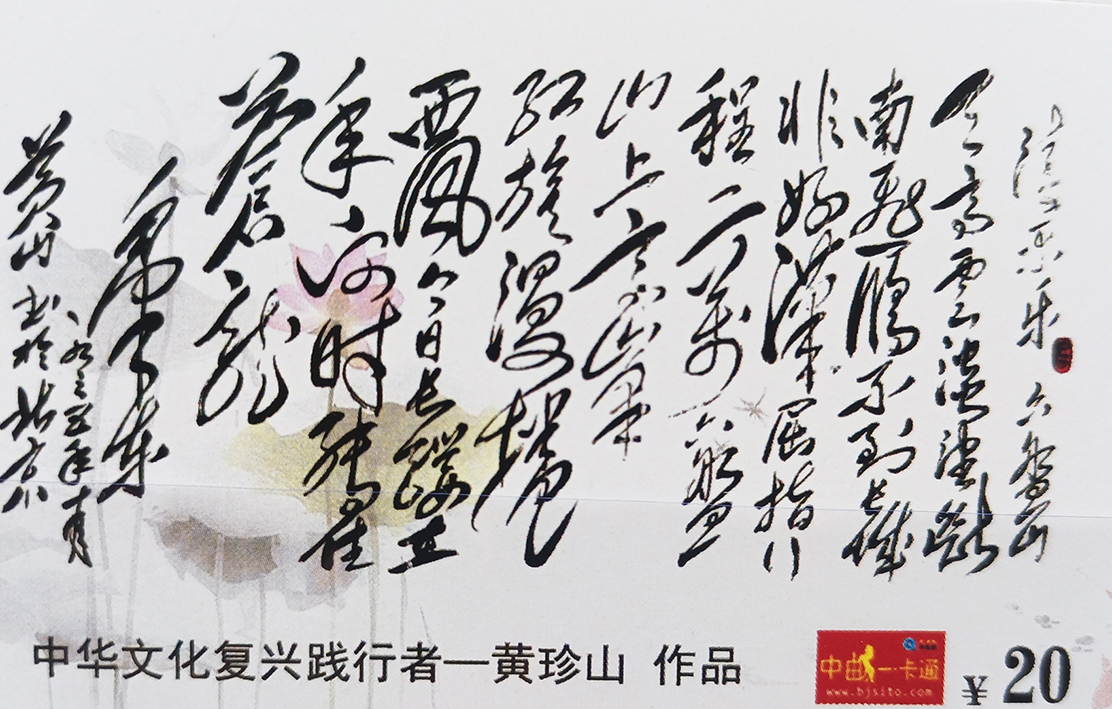 清平乐 六盘山
天高云淡望断
南飞雁不到长城
非好汉屈指行
程二万六盘
山上高峰
红旗漫卷
西风今日长缨在
手何时缚住
苍龙
毛泽东
一九三五年十月
黄山书于北京
中华文化复兴践行者—黄珍山 作品
中曲一卡通
www.bjsito.com
¥20